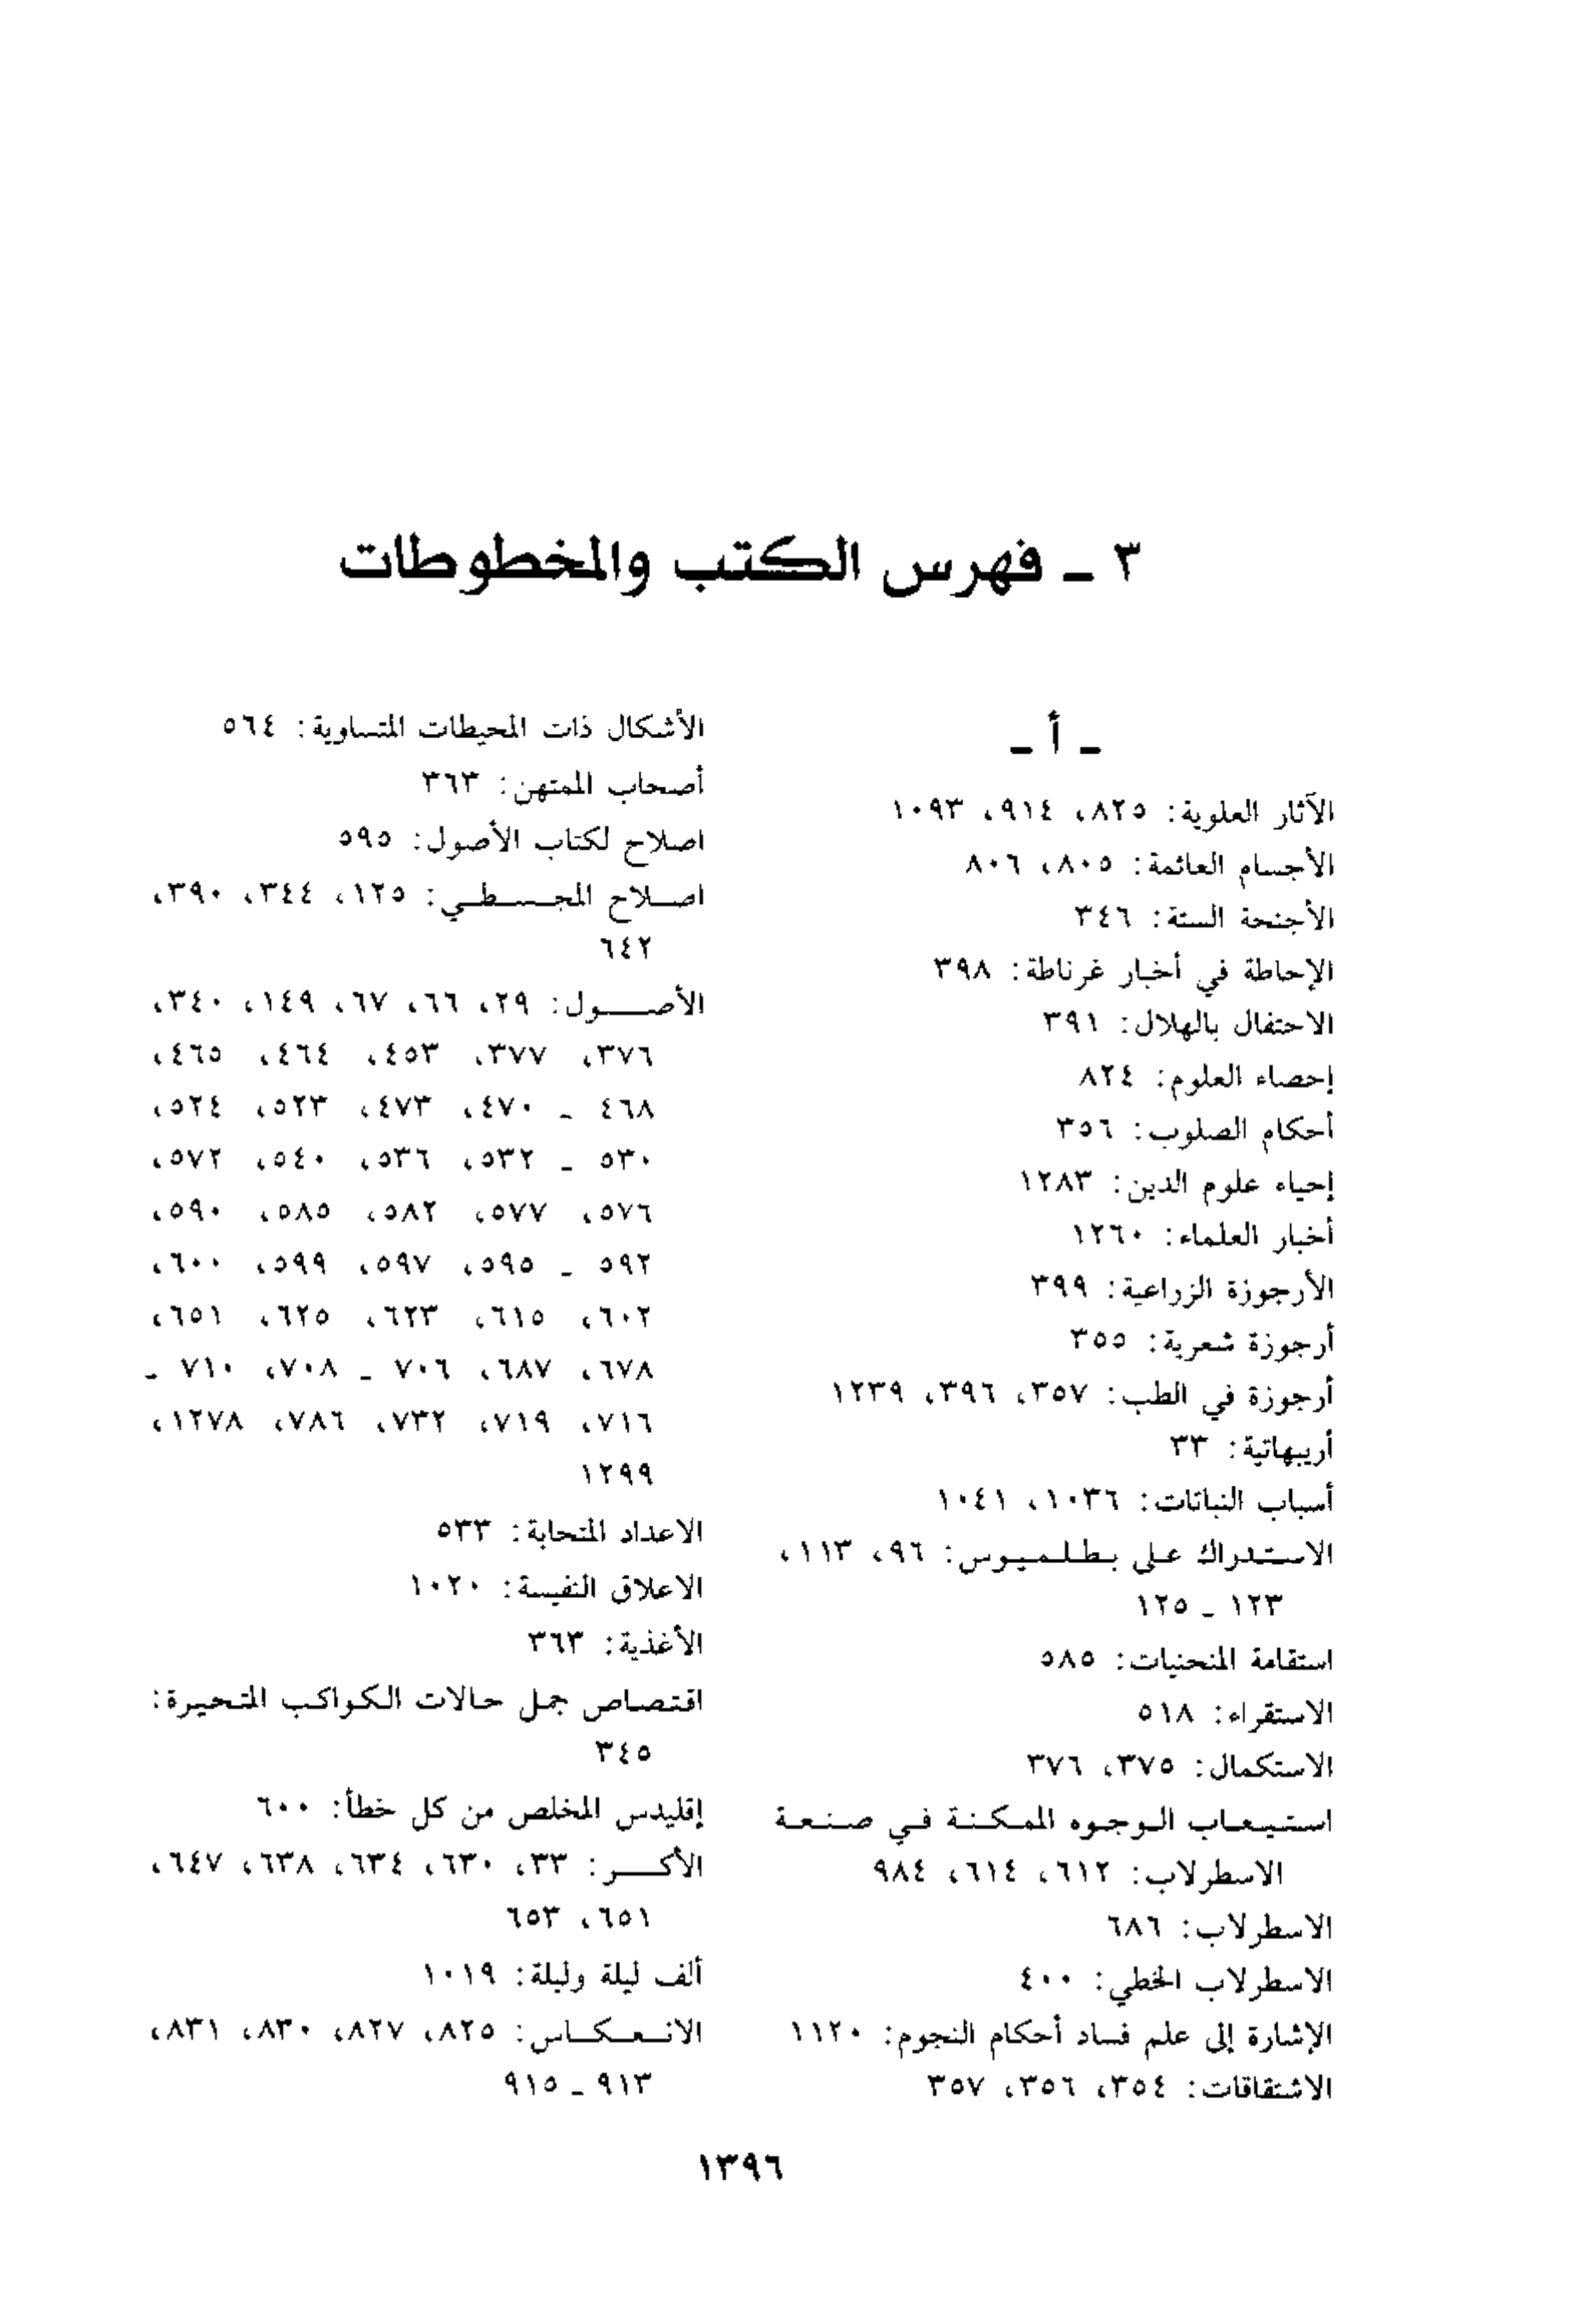 ٣ ـ فهرس الكتب والمخطوطات
ـ أ ـ
الآثار العلوية: ٨٢٥، ٩١٤، ١٠٩٣
الأجسام العائمة: ٨٠٥، ٨٠٦
الأجنحة الستة: ٣٤٦
الإحاطة في أخبار غرناطة: ٣٩٨
الاحتفال بالهلال: ٣٩١
إحصاء العلوم: ٨٢٤
أحكام الصلوب: ٣٥٦
إحياء علوم الدين: ١٢٨٣
أخبار العلماء: ١٢٦٠
الأرجوزة الزراعية: ٣٩٩
أرجوزة شعرية: ٣٥٥
أرجوزة في الطب: ٣٥٧، ٣٩٦، ١٢٣٩
أريبهاتية: ٣٣
أسباب النباتات: ١٠٣٦، ١٠٤١
الاستدراك على بطلميوس: ٩٦، ١١٣،
١٢٣ ـ ١٢٥
استقامة المنحنيات: ٥٨٥
الاستقراء: ٥١٨
الاستكمال: ٣٧٥، ٣٧٦
استيعاب الوجوه الممكنة في صنعة
الاسطرلاب: ٦١٢، ٦١٤، ٩٨٤
الاسطرلاب: ٦٨٦
الاسطرلاب الخطي: ٤٠٠
الإشارة إلى علم فساد أحكام النجوم: ١١٢٠
الاشتقاقات: ٣٥٤، ٣٥٦، ٣٥٧
الأشكال ذات المحيطات المتساوية: ٥٦٤
أصحاب الممتهن: ٣٦٣
اصلاح لكتاب الأصول: ٥٩٥
اصلاح المجسطي: ١٢٥، ٣٤٤، ٣٩٠،
٦٤٢
الأصول: ٢٩، ٦٦، ٦٧، ١٤٩، ٣٤٠،
٣٧٦، ٣٧٧، ٤٥٣، ٤٦٤، ٤٦٥،
٤٦٨ ـ ٤٧٠، ٤٧٣، ٥٢٣، ٥٢٤،
٥٣٠ ـ ٥٣٢، ٥٣٦، ٥٤٠، ٥٧٢،
٥٧٦، ٥٧٧، ٥٨٢، ٥٨٥، ٥٩٠،
٥٩٢ ـ ٥٩٥، ٥٩٧، ٥٩٩، ٦٠٠،
٦٠٢، ٦١٥، ٦٢٣، ٦٢٥، ٦٥١،
٦٧٨، ٦٨٧، ٧٠٦ ـ ٧٠٨، ٧١٠ ـ
٧١٦، ٧١٩، ٧٣٢، ٧٨٦، ١٢٧٨،
١٢٩٩
الاعداد المتحابة: ٥٣٣
الاعلاق النفيسة: ١٠٢٠
الأغذية: ٣٦٣
اقتصاص جمل حالات الكواكب المتحيرة:
٣٤٥
إقليدس المخلص من كل خطأ: ٦٠٠
الأكر: ٣٣، ٦٣٠، ٦٣٤، ٦٣٨، ٦٤٧،
٦٥١، ٦٥٣
ألف ليلة وليلة: ١٠١٩
الانعكاس: ٨٢٥، ٨٢٧، ٨٣٠، ٨٣١،
٩١٣ ـ ٩١٥
١٣٩٦